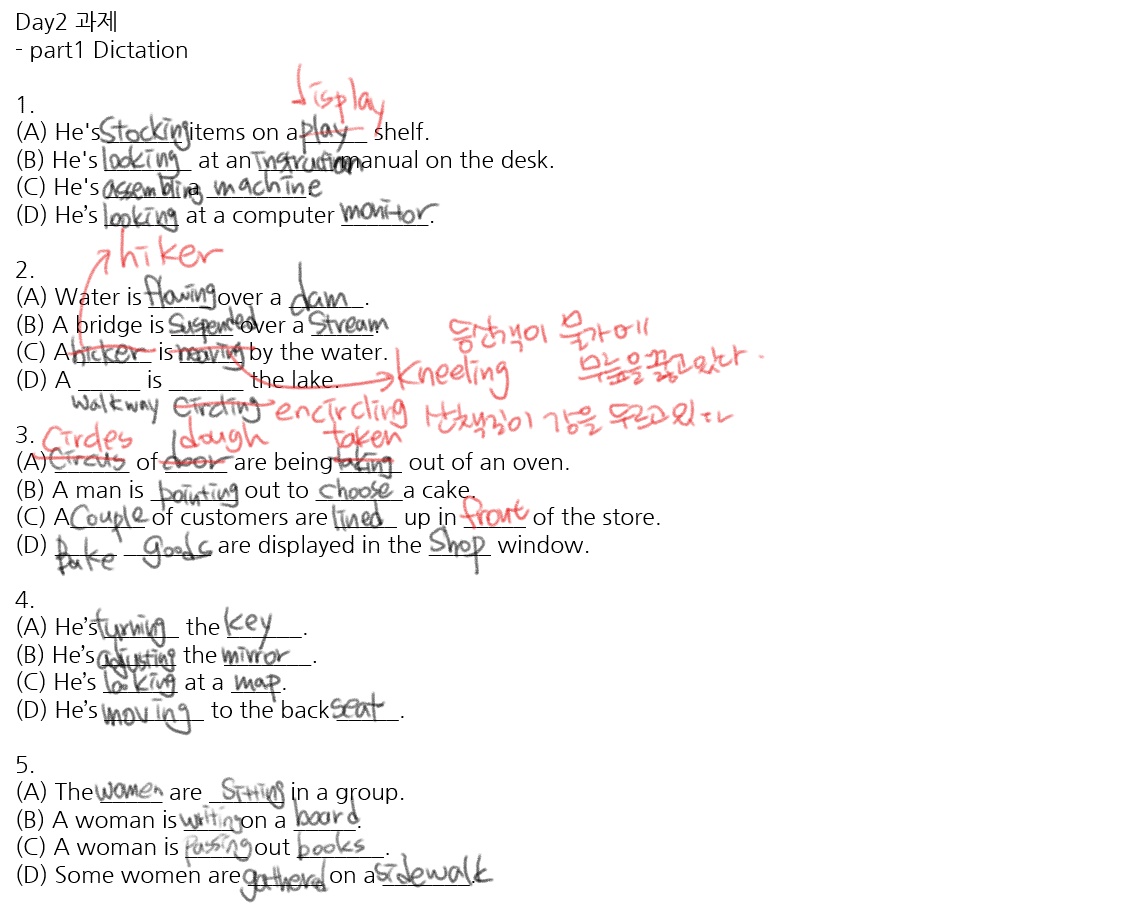 Day2 과제
- part1 Dictation
display
1.
(A) He's Stocking items on a play shelf.
(B) He's looking at an instruction manual on the desk.
(C) He's assembling a machine.
(D) He's looking at a computer monitor.
hiker
2.
(A) Water is flowing over a dam.
(B) A bridge is Suspended over a Stream.
등산객이 물가에
(C) A hicker is meaving by the water.
kneeling 무릎을 꿇고 있다.
(D) A walkway is Circling the lake.
encircling 산책길이 강을 두르고 있다
3.
Circles dough taken
(A) Circus of door are being taking out of an oven.
(B) A man is pointing out to choose a cake.
(C) A Couple of customers are lined up in front of the store.
(D) Bake goods are displayed in the Shop window.
4.
(A) He's turning the key.
(B) He's adjusting the mirror.
(C) He's looking at a map.
(D) He's moving to the back seat.
5.
(A) The women are Sitting in a group.
(B) A woman is writing on a board.
(C) A woman is Passing out books.
(D) Some women are gatherd on a sidewalk.